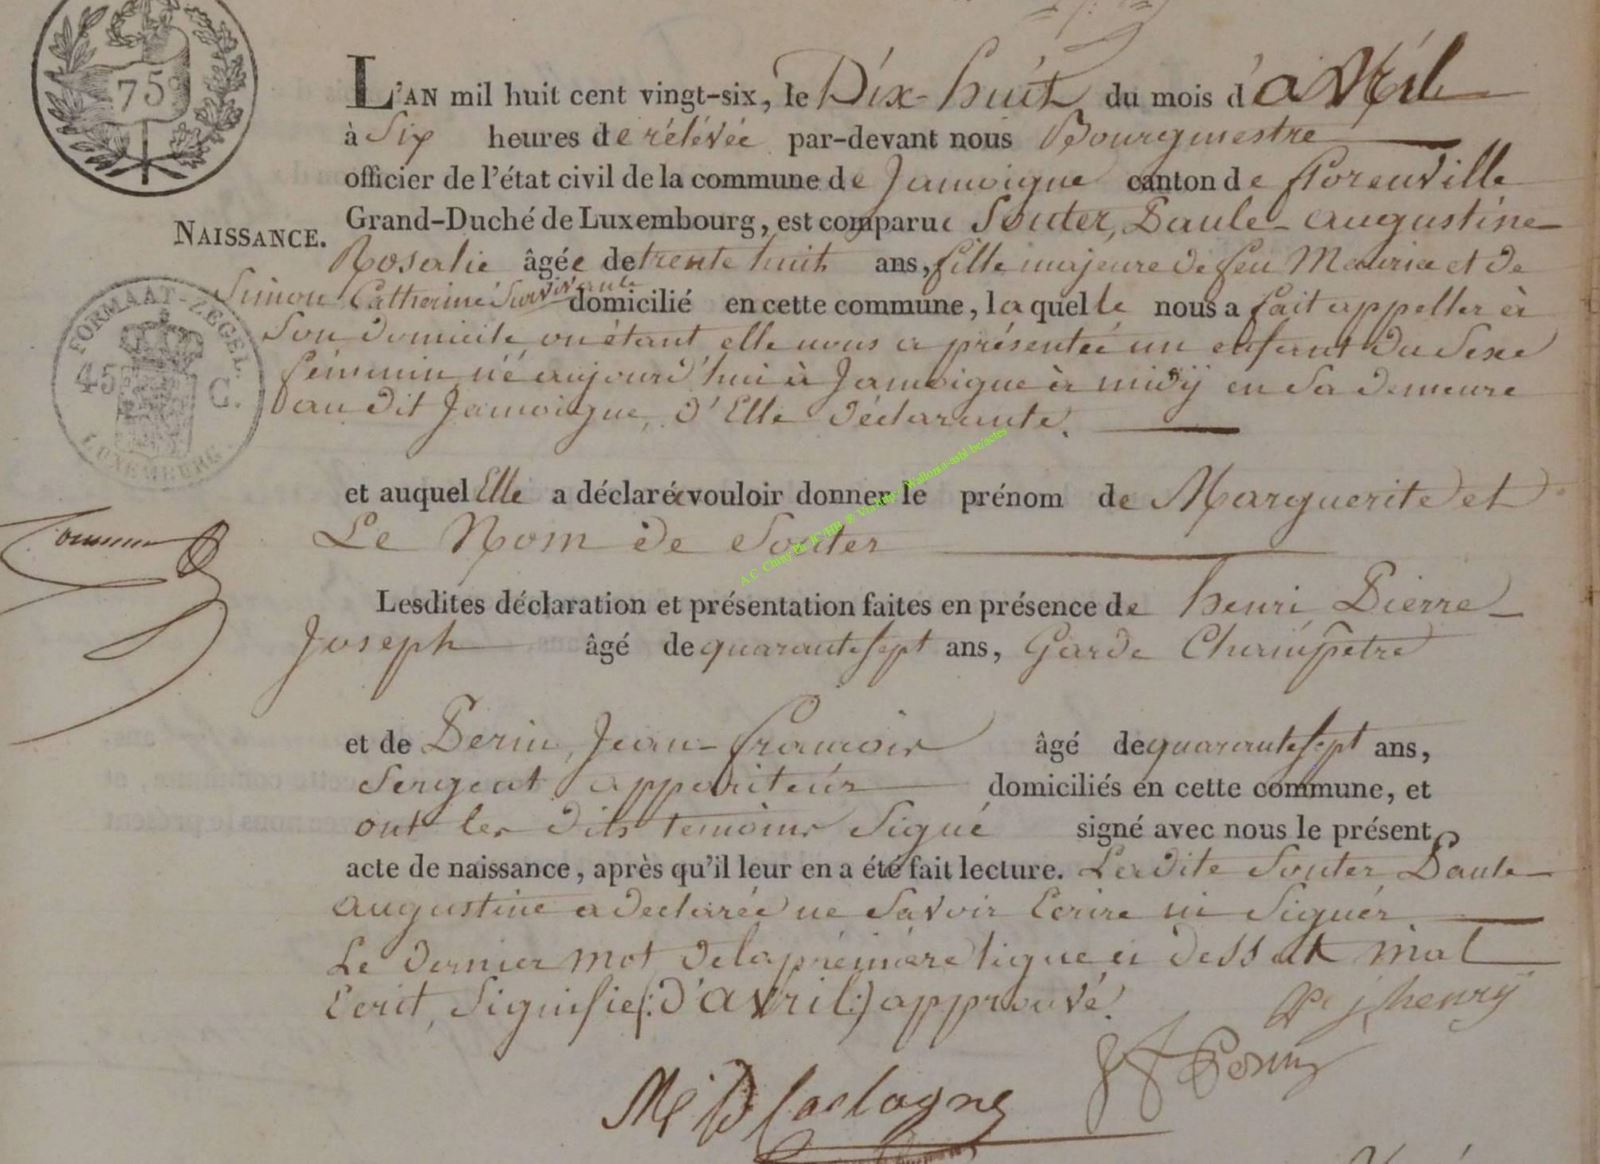 75
L'AN mil huit cent vingt-six, le Dix-huit du mois d'avril
à Six heures de rélévée par-devant nous Bourgmestre
officier de l'état civil de la commune de Jamoigne canton de florenville
Grand-Duché de Luxembourg, est comparue Souter, Paule-augustine
NAISSANCE.
Rosalie âgée de trente huit ans, fille majeure de feu Maurice et de
Simon Catherine Survivante domicilié en cette commune, laquelle nous a fait appeller à
Son domicile ou étant elle nous a présentée un enfant du Sexe
féminin né aujourd'hui à Jamoigne à midÿ en Sa demeure
au dit Jamoigne, d'Elle déclarante.
FORMAAT-ZEGEL.
45 C.
LUXEMBURG
et auquel Elle a déclaré vouloir donner le prénom de Marguerite et
Le Nom de Souter
A.C. Chiny
Lesdites déclaration et présentation faites en présence de henri Pierre
Joseph âgé de quarante Sept ans, Garde Champêtre
et de Perin, Jean-francois âgé de quarante Sept ans,
Sergent appariteur domiciliés en cette commune, et
ont les dits temoins Signé signé avec nous le présent
acte de naissance, après qu'il leur en a été fait lecture. La dite Souter Paule
augustine a declarée ne Savoir Ecrire ni Signér
Le dernier mot de la prémière ligne ci dess mal
Ecrit, Signifie (:d'avril:) approuvé.
P j henry
J f Perin